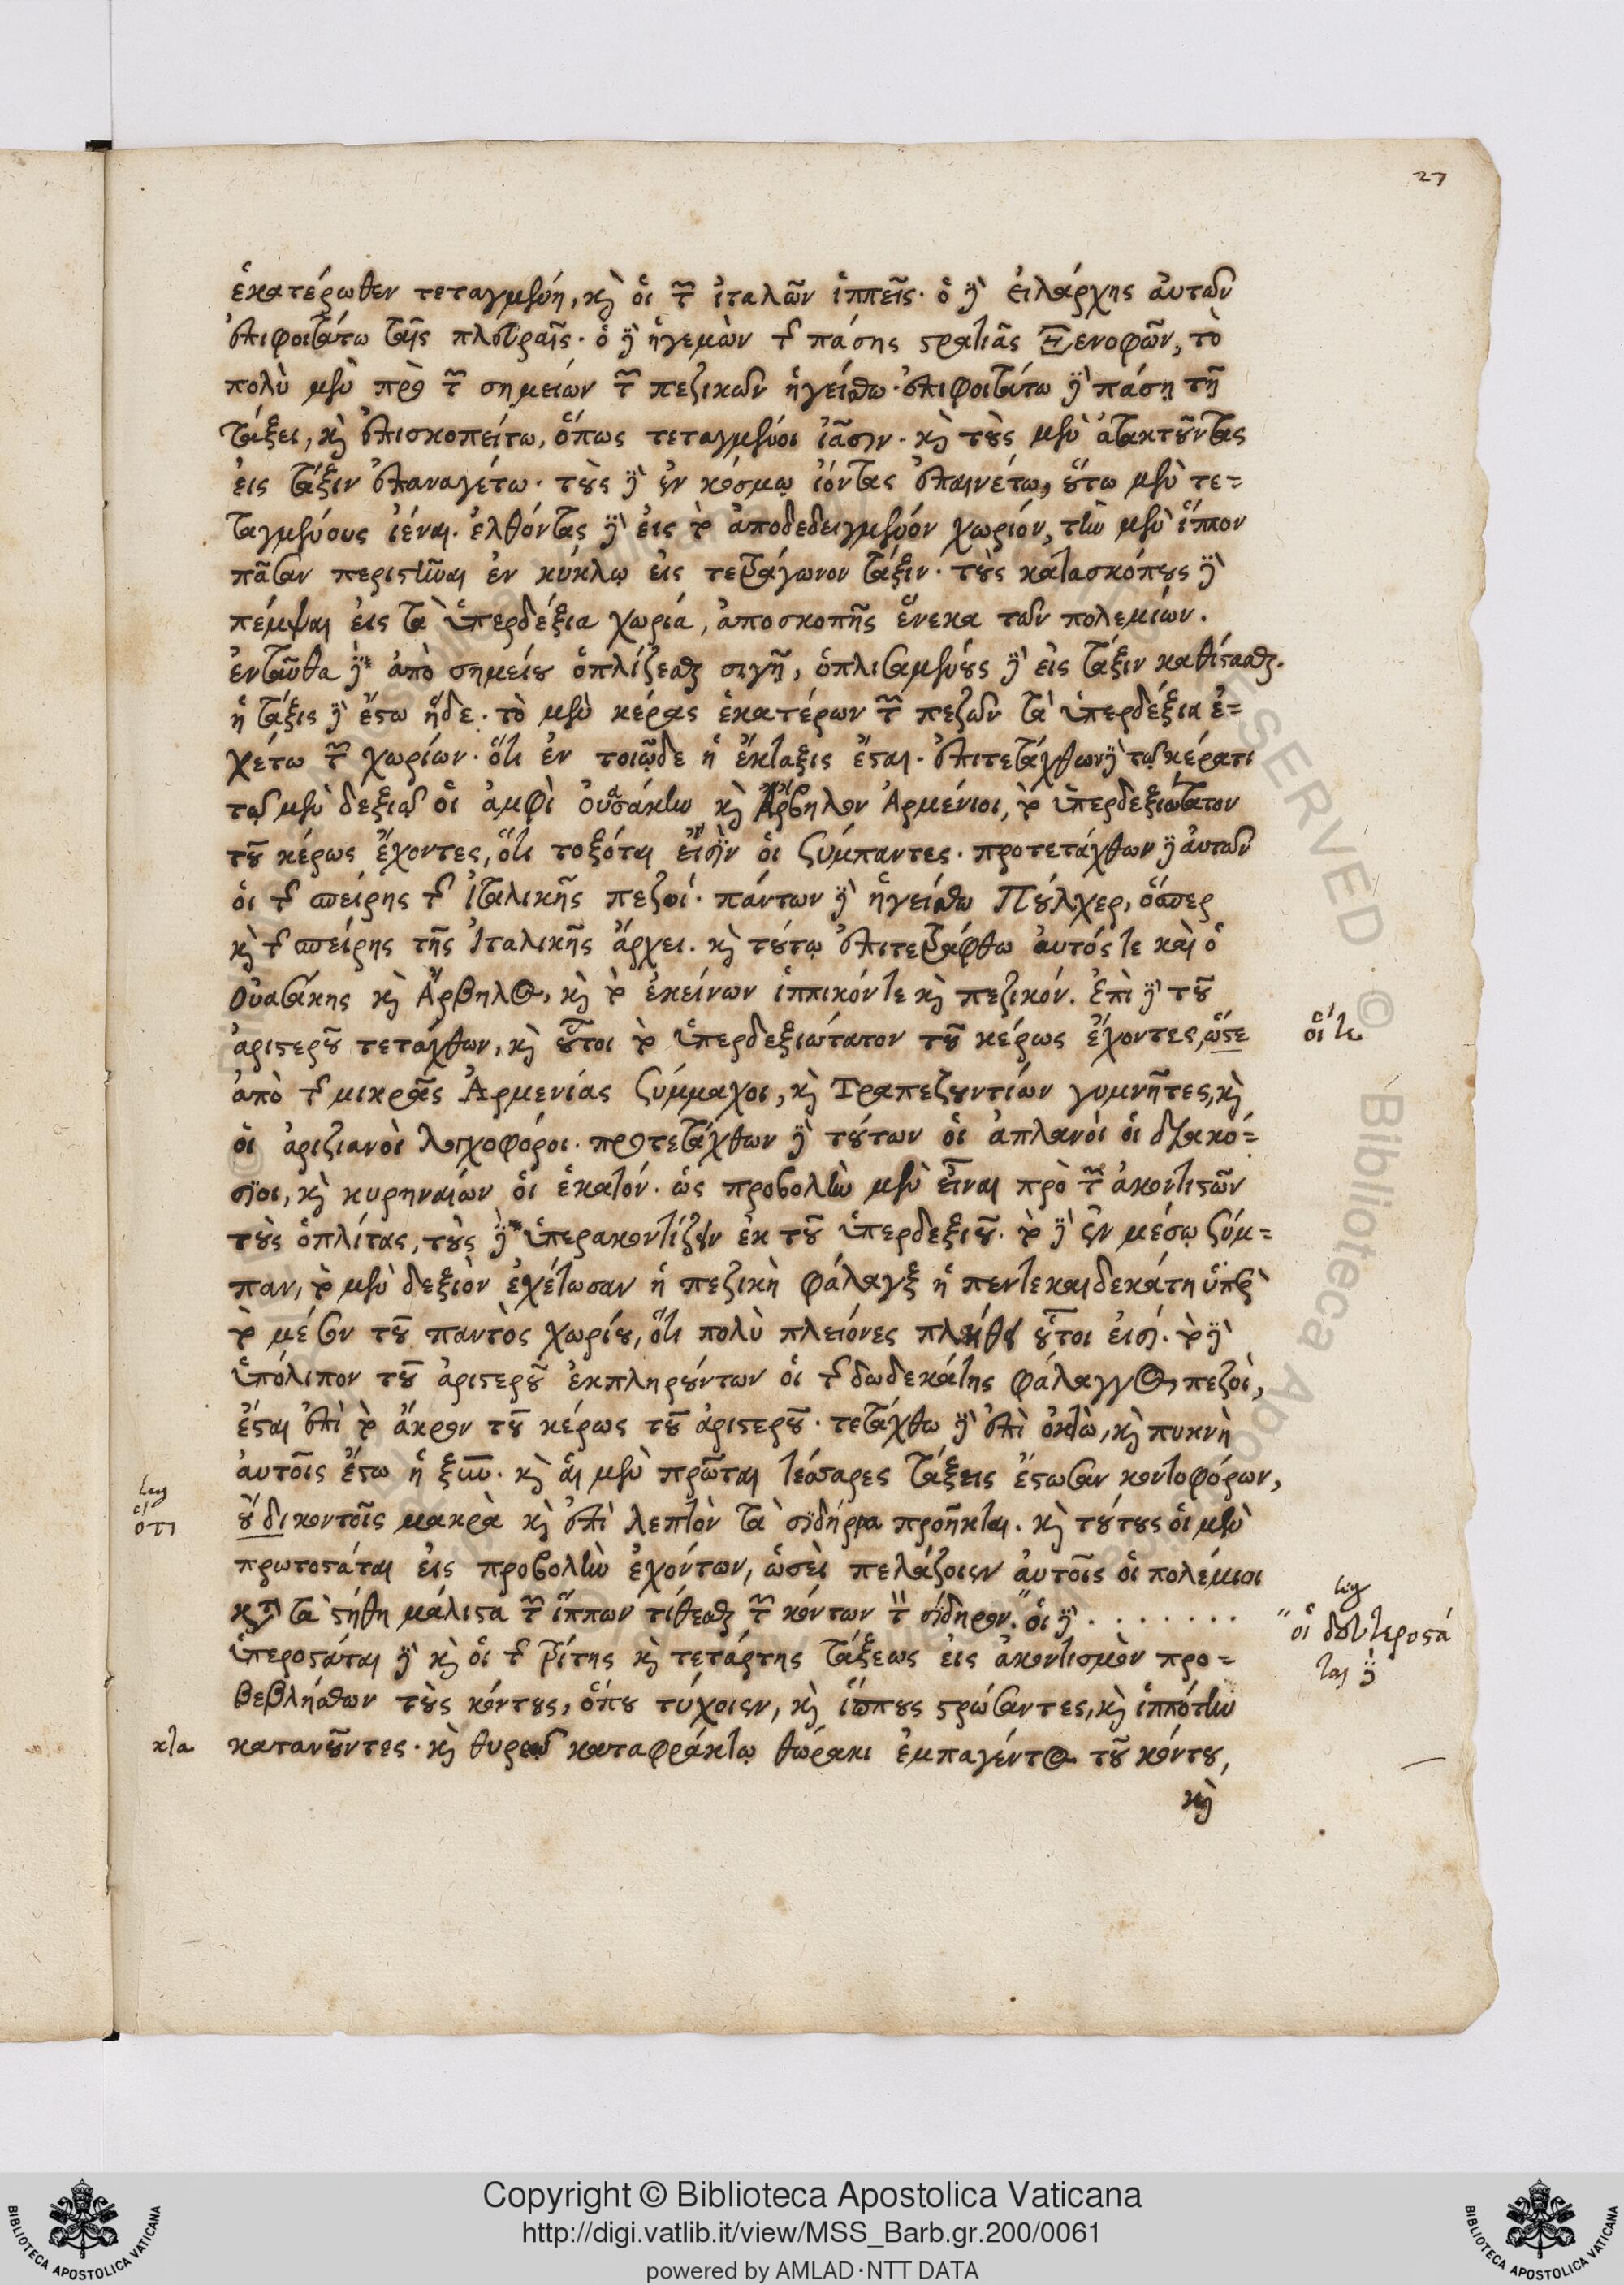 27
ἑκατέρωθεν τεταγμένη, καὶ οἱ τῶν ἰταλῶν ἱππεῖς· ὁ δὲ εἰλάρχης αὐτῶν
ἐπιφοιτάτω ταῖς πλευραῖς· ὁ δὲ ἡγεμὼν τῆς πάσης στρατιᾶς Ξενοφῶν, τὸ
πολὺ μὲν πρὸ τῶν σημείων τῶν πεζικῶν ἡγείσθω· ἐπιφοιτάτω δὲ πάσῃ τῇ
τάξει, καὶ ἐπισκοπείτω, ὅπως τεταγμένοι ἰᾶσιν· καὶ τοὺς μὲν ἀτακτοῦντας
εἰς τάξιν ἐπαναγέτω· τοὺς δὲ ἐν κόσμῳ ἰόντας ἐπαινέτω, οὕτω μὲν τε=
ταγμένους ἰέναι. ἐλθόντας δὲ εἰς τὸ ἀποδεδειγμένον χωρίον, τὴν μὲν ἵππον
πᾶσαν περιστῆναι ἐν κύκλῳ εἰς τετράγωνον τάξιν· τοὺς κατασκόπους δὲ
πέμψαι εἰς τὰ ὑπερδέξια χωρία, ἀποσκοπῆς ἕνεκα τῶν πολεμίων.
ἐνταῦθα δὲ ἀπὸ σημείου ὁπλίζεσθαι σιγῇ, ὁπλισαμένους δὲ εἰς τάξιν καθίστασθαι.
ἡ τάξις δὲ ἔστω ἥδε· τὸ μὲν κέρας ἑκατέρων τῶν πεζῶν τὰ ὑπερδέξια ἐ=
χέτω τῶν χωρίων· ὅτι ἐν τοιῷδε ἡ ἔκταξις ἔσται. ἐπιτετάχθων δὲ τῷ κέρατι
τῷ μὲν δεξιῷ οἱ ἀμφὶ Οὐασάκην καὶ Ἄρβηλον Ἀρμένιοι, τὸ ὑπερδεξιώτατον
τοῦ κέρως ἔχοντες, ὅτι τοξόται εἰσὶν οἱ ξύμπαντες· προτετάχθων δὲ αὐτῶν
οἱ τῆς σπείρης τῆς Ἰταλικῆς πεζοί· πάντων δὲ ἡγείσθω Πούλχερ, ὅσπερ
καὶ τῆς σπείρης τῆς Ἰταλικῆς ἄρχει. καὶ τούτῳ ἐπιτετράφθω αὐτός τε καὶ ὁ
Οὐασάκης καὶ Ἄρβηλος, καὶ τὸ ἐκείνων ἱππικόν τε καὶ πεζικόν. Ἐπὶ δὲ τοῦ
ἀριστεροῦ τετάχθων, καὶ οὗτοι τὸ ὑπερδεξιώτατον τοῦ κέρως ἔχοντες, ὥστε
οἵ τε
ἀπὸ τῆς μικρᾶς Ἀρμενίας ξύμμαχοι, καὶ Τραπεζουντίων γυμνῆτες, καὶ
οἱ ἀριζιανοὶ λογχοφόροι. προτετάχθων δὲ τούτων οἱ ἀπλανοὶ οἱ διακό=
σιοι, καὶ κυρηναίων οἱ ἑκατόν· ὡς προβολὴν μὲν εἶναι πρὸ τῶν ἀκοντιστῶν
τοὺς ὁπλίτας, τοὺς δὲ ὑπερακοντίζειν ἐκ τοῦ ὑπερδεξιοῦ. τὸ δὲ ἐν μέσῳ ξύμ=
παν, τὸ μὲν δεξιὸν ἐχέτωσαν ἡ πεζικὴ φάλαγξ ἡ πεντεκαιδεκάτη ὑπὲρ
τὸ μέσον τοῦ παντὸς χωρίου, ὅτι πολὺ πλείονες πλήθει οὗτοι εἰσί. τὸ δὲ
ὑπόλιπον τοῦ ἀριστεροῦ ἐκπληρούντων οἱ τῆς δωδεκάτης φάλαγγος πεζοί,
ἔσται ἐπὶ τὸ ἄκρον τοῦ κέρως τοῦ ἀριστεροῦ· τετάχθω δὲ ἐπὶ ὀκτὼ, καὶ πυκνὴ
αὐτοῖς ἔστω ἡ ξυν. καὶ αἱ μὲν πρῶται τέσσαρες τάξεις ἔστωσαν κοντοφόρων,
ὅτι
οὗ δι κοντοῖς μακρὰ καὶ ἐπὶ λεπτὸν τὰ σιδήρια προῆκται. καὶ τούτους οἱ μὲν
πρωτοστάται εἰς προβολὴν ἐχόντων, ὡσεὶ πελάζοιεν αὐτοῖς οἱ πολέμιοι
κατὰ τὰ στήθη μάλιστα τῶν ἵππων τίθεσθαι τῶν κόντων τὸν σίδηρον. οἱ δὲ . . . . . . . .
οἱ δευτεροστά
ται δὲ
ὑπεροστάται δὲ καὶ οἱ τῆς τρίτης καὶ τετάρτης τάξεως εἰς ἀκοντισμὸν προ=
βεβλήσθων τοὺς κόντους, ὅπου τύχοιεν, καὶ ἵππους τρώσαντες, καὶ ἱππότην
κτα
κατανοῦντες· καὶ θυρεῷ καταφράκτῳ θώρακι ἐμπαγέντος τοῦ κόντου,
καὶ
Copyright © Biblioteca Apostolica Vaticana
http://digi.vatlib.it/view/MSS_Barb.gr.200/0061
powered by AMLAD·NTT DATA